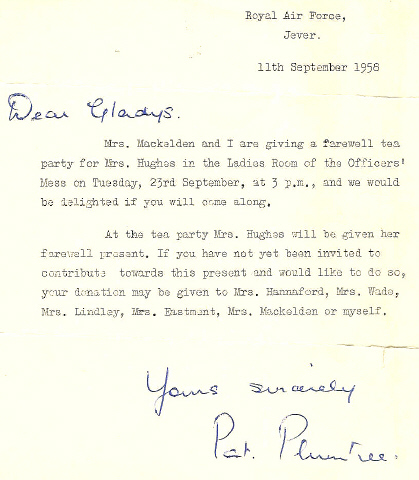 Royal Air Force,
Jever.
11th September 1958
Dear Gladys.
Mrs. Mackelden and I are giving a farewell tea
party for Mrs. Hughes in the Ladies Room of the Officers'
Mess on Tuesday, 23rd September, at 3 p.m., and we would
be delighted if you will come along.
At the tea party Mrs. Hughes will be given her
farewell present. If you have not yet been invited to
contribute towards this present and would like to do so,
your donation may be given to Mrs. Hannaford, Mrs. Wade,
Mrs. Lindley, Mrs. Eastment, Mrs. Mackelden or myself.
Yours sincerely
Pat. Plumtree.